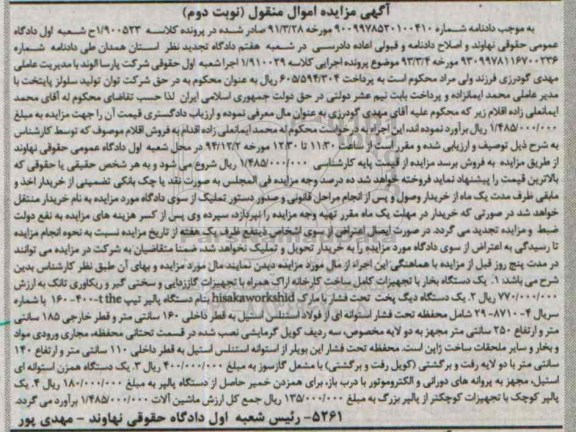 آگهی مزایده اموال منقول (نوبت دوم)
به موجب دادنامه شماره ۹۰۰۹۹۷۸۵۳۰۱۰۰۴۱۰ مورخه ۹۱/۳/۲۸ صادر شده در پرونده کلاسه ۱/۹۰۰۵۳۳ح شعبه اول دادگاه
عمومی حقوقی نهاوند و اصلاح دادنامه و قبولی اعاده دادرسی در شعبه هفتم دادگاه تجدید نظر استان همدان طی دادنامه شماره
۹۳۰۹۹۷۸۱۱۶۷۰۰۲۳۶ مورخه ۹۳/۳/۴ موضوع پرونده اجرایی کلاسه ۱/۹۱۰۰۲۹ اجرا شعبه اول حقوقی شرکت پارسا الوند با مدیریت عاملی
مهدی گودرزی فرزند ولی مراد محکوم است به پرداخت ۶۰۵/۵۹۴/۳۰۴ ریال به عنوان محکوم به در حق شرکت توان تولید سلولز پایتخت با
مدیر عاملی محمد ایمانزاده و پرداخت بابت نیم عشر دولتی در حق دولت جمهوری اسلامی ایران لذا حسب تقاضای محکوم له آقای محمد
ایمانعلی زاده اقلام زیر که محکوم علیه آقای مهدی گودرزی به عنوان مال معرفی نموده و ارزیاب دادگستری قیمت آن را جهت مزایده به مبلغ
۱/۴۸۵/۰۰۰/۰۰۰ ریال برآورد نموده اند، این اجراء به درخواست محکوم له محمد ایمانعلی زاده اقدام به فروش اقلام موصوف که توسط کارشناس
به شرح ذیل توصیف و ارزیابی شده و مقرر است از ساعت ۱۱:۳۰ تا ۱۲:۳۰ مورخه ۹۴/۱۲/۲ در محل شعبه اول دادگاه عمومی حقوقی نهاوند
از طریق مزایده به فروش برسد مزایده از قیمت پایه کارشناسی ۱/۴۸۵/۰۰۰/۰۰۰ ریال شروع می شود و به هر شخص حقیقی یا حقوقی که
بالاترین قیمت را پیشنهاد نماید فروخته خواهد شد ده درصد وجه مزایده فی المجلس به صورت نقد یا چک بانکی تضمینی از خریدار اخذ و
مابقی ظرف مدت یک ماه از خریدار وصول و پس از انجام مراحل قانونی و صدور دستور تملیک از سوی دادگاه مورد مزایده به نام خریدار منتقل
خواهد شد در صورتی که خریدار در مهلت یک ماه مقرر تهیه وجه مزایده را نپردازد، سپرده وی پس از کسر هزینه های مزایده به نفع دولت
ضبط و مزایده تجدید می گردد. در صورت ایصال اعتراض از سوی اشخاص ذینفع ظرف یک هفته از تاریخ مزایده نسبت به نحوه انجام مزایده
تا رسیدگی به اعتراض از سوی دادگاه مورد مزایده را به خریدار تحویل و تملیک نخواهد شد. ضمنا متقاضیان به شرکت در مزایده می توانند
در مدت پنج روز قبل از مزایده با هماهنگی این اجراء از مال مورد مزایده دیدن نمایند. مال مورد مزایده و بهای آن طبق نظر کارشناس بدین
شرح می باشد: ۱. یک دستگاه بخار با تجهیزات کامل ساخت کارخانه اراک همراه با تجهیزات گاززدایی و سختی گیر و ریکاوری تانک به ارزش
۷۷۰/۰۰۰/۰۰۰ ریال ۲. یک دستگاه دیگ پخت تحت فشار با مارک hisakaworkshid بنام دستگاه پالپر تیپ t the ۱۶۰-۴۰۰ با شماره
سریال ۴-۸۷۱۰-۲۹ شامل محفظه تحت فشار استوانه ای از فولاد استنلس استیل به قطر داخلی ۱۶۰ سانتی متر و قطر خارجی ۱۸۵ سانتی
متر و ارتفاع ۲۵۰ سانتی متر مجهز به دو لایه مخصوص، سه ردیف کویل گرمایشی نصب شده در قسمت تحتانی محفظه، مجاری ورودی مواد
و بخار و سایر ملحقات ساخت ژاپن است. محفظه تحت فشار این بویلر از استوانه استنلس استیل به قطر داخلی ۱۱۰ سانتی متر و ارتفاع ۱۴۰
سانتی متر با دو لایه رفت و برگشتی (کویل رفت و برگشتی) با مشعل گازسوز به مبلغ ۴۰۰/۰۰۰/۰۰۰ ریال ۳. یک دستگاه همزن استوانه ای
استیل، مجهز به پروانه های دورانی و الکتروموتور با درب باز، برای همزدن خمیر حاصل از دستگاه پالپر به مبلغ ۱۸۰/۰۰۰/۰۰۰ ریال ۴. یک
پالپر کوچک با تجهیزات کوچکتر از پالپر بزرگ به مبلغ ۱۳۵/۰۰۰/۰۰۰ ریال جمع کل ارزش ماشین آلات ۱/۴۸۵/۰۰۰/۰۰۰ برآورد می گردد.
۵۲۶۱- رئیس شعبه اول دادگاه حقوقی نهاوند - مهدی پور